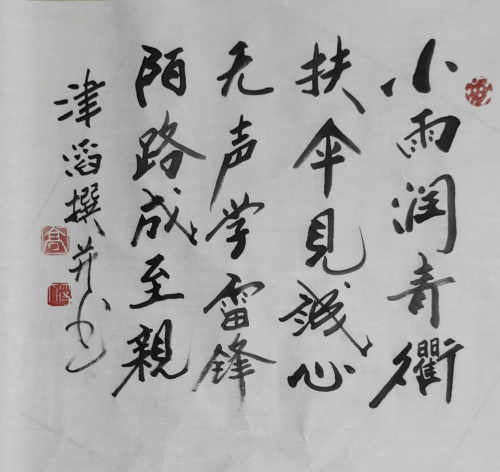 小雨润青衢
扶伞见誠心
无声学雷锋
陌路成至親
津滔撰并书